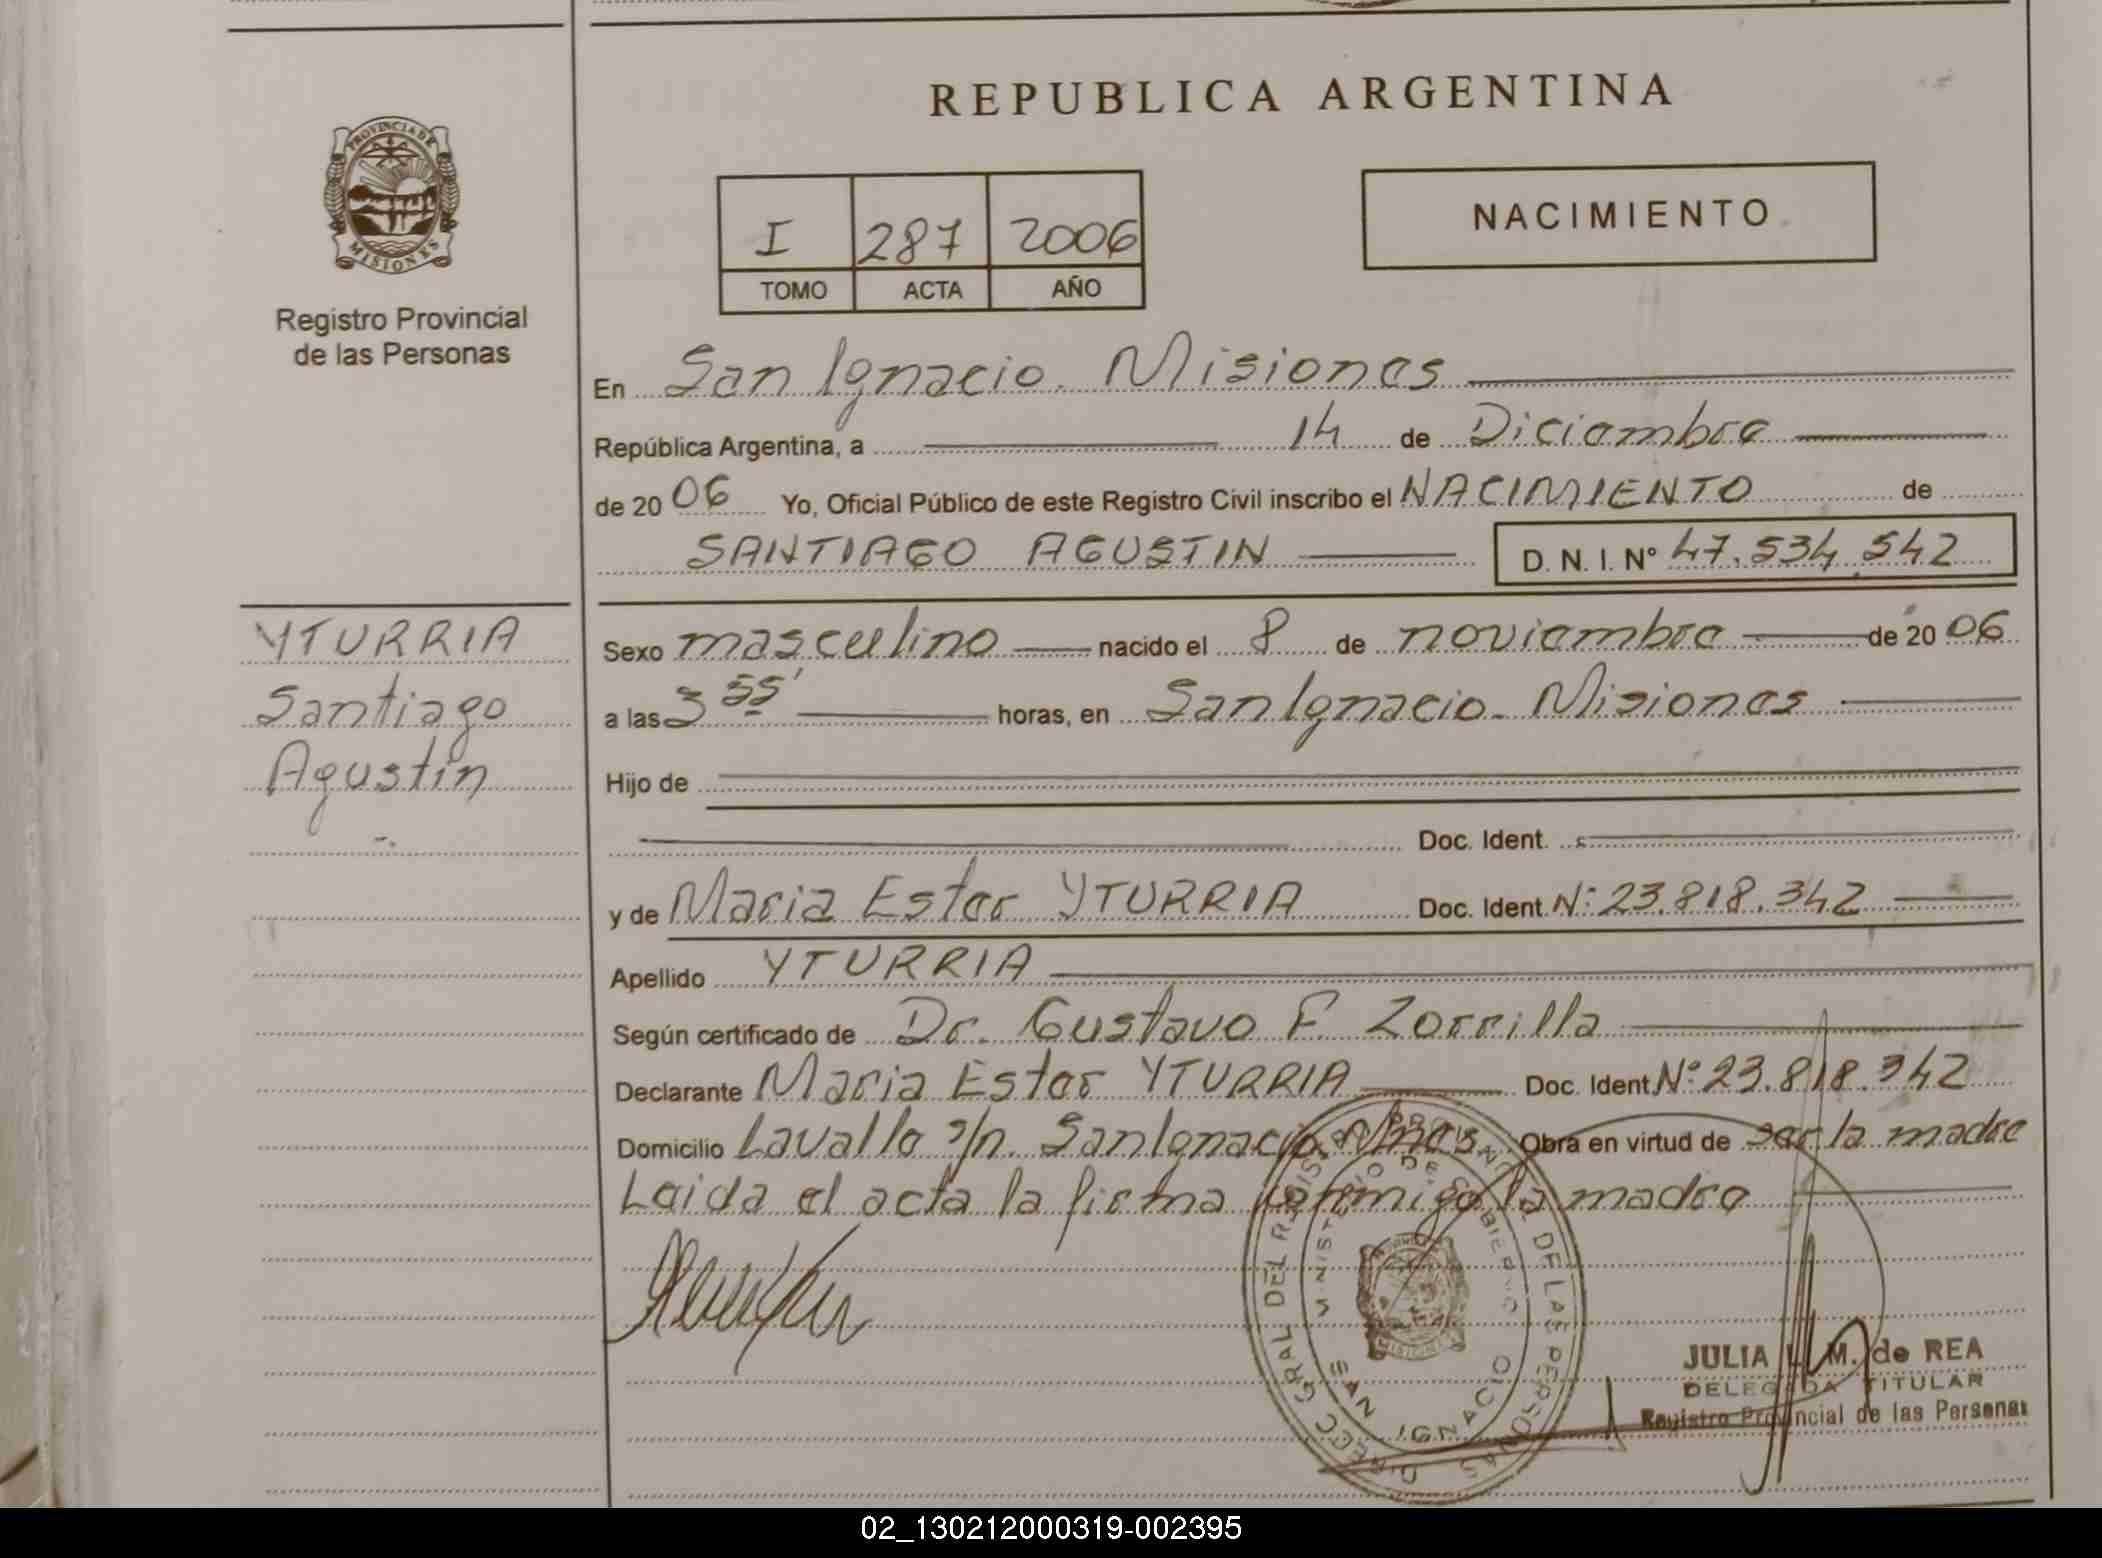 REPUBLICA ARGENTINA
PROVINCIA DE
MISIONES
Registro Provincial
de las Personas
I 287 2006
TOMO ACTA AÑO
NACIMIENTO
En San Ignacio. Misiones
República Argentina, a 14 de Diciembre
de 20 06 Yo, Oficial Público de este Registro Civil inscribo el NACIMIENTO de
SANTIAGO AGUSTIN D. N. I. Nº 47.534.542
YTURRIA
Santiago
Agustín
Sexo masculino nacido el 8 de noviembre de 20 06
a las 3 55' horas, en San Ignacio. Misiones
Hijo de
Doc. Ident.
y de Maria Ester YTURRIA Doc. Ident. Nº: 23.818.342
Apellido YTURRIA
Según certificado de Dr. Gustavo F. Zorrilla
Declarante Maria Ester YTURRIA Doc. Ident. Nº: 23.818.342
Domicilio Lavalle s/n. San Ignacio. Mnes. Obra en virtud de ser la madre
Leida el acta la firma conmigo la madre
DIRECC GRAL DEL REGISTRO PROVINCIAL DE LAS PERSONAS
MINISTERIO DE GOBIERNO
SAN IGNACIO
JULIA L. M. de REA
DELEGADA TITULAR
Registro Provincial de las Personas
02_130212000319-002395